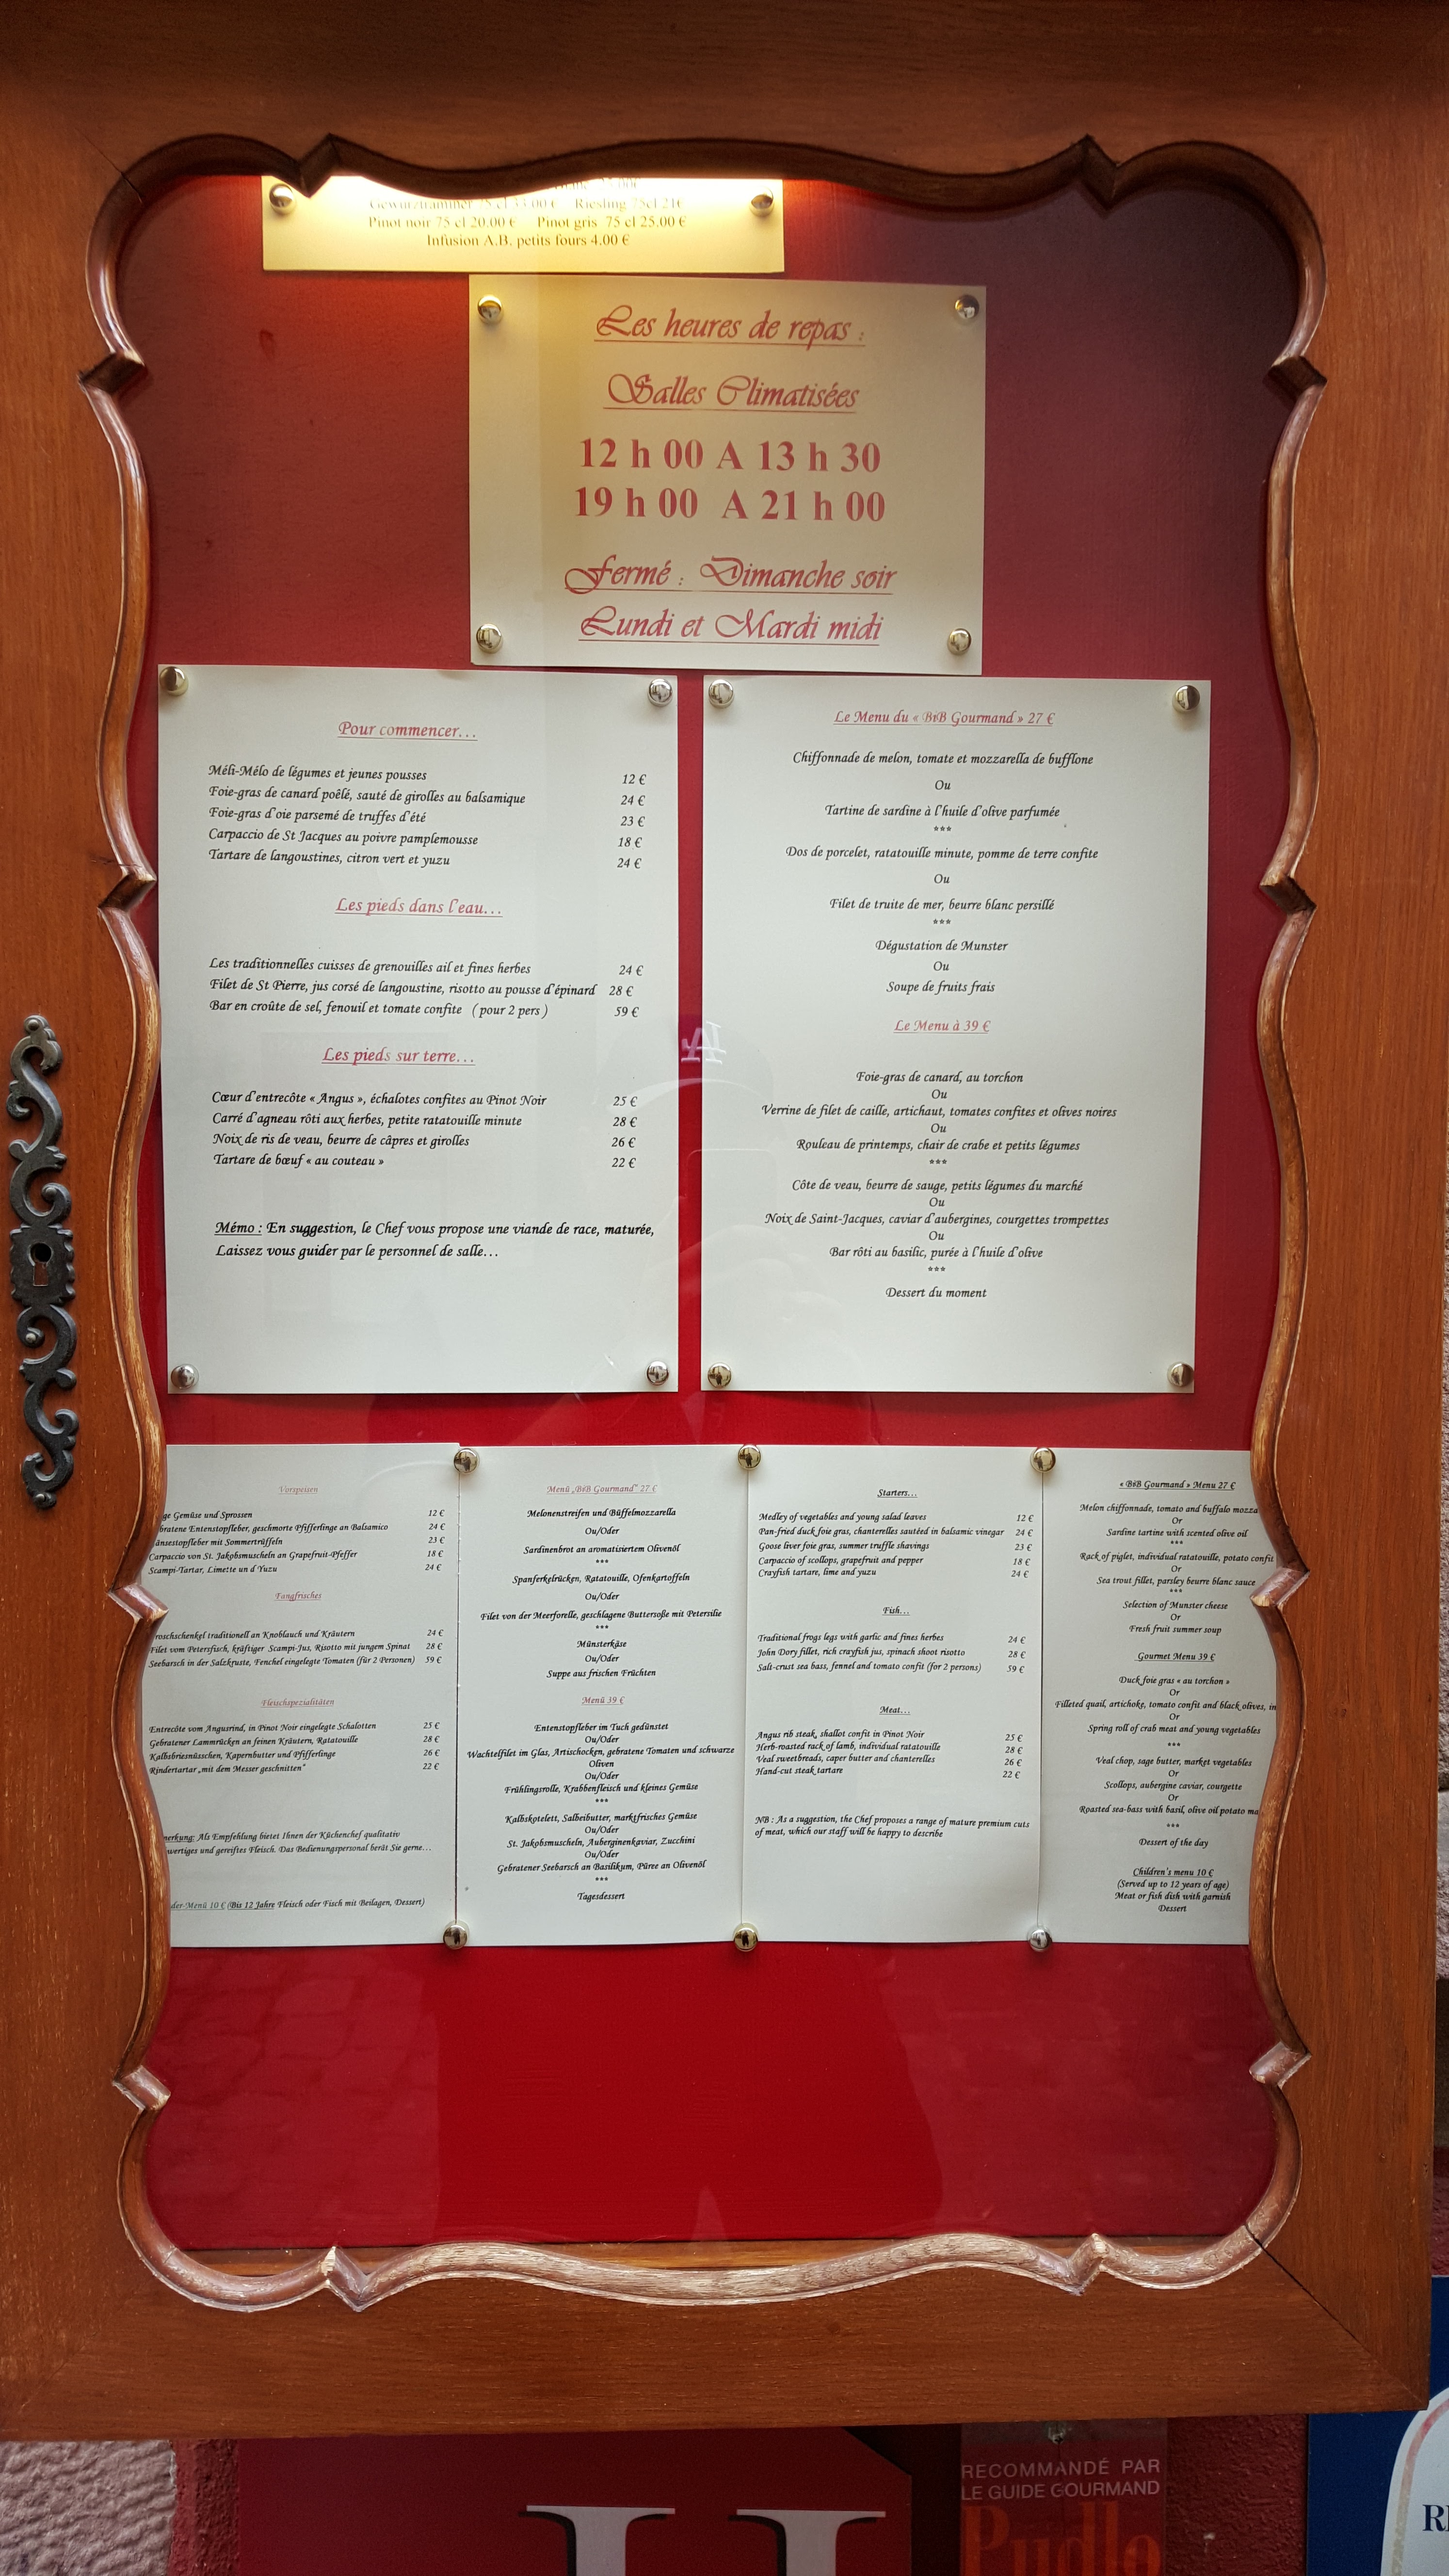 75 cl 33.00 € Riesling 75cl 21€
Pinot noir 75 cl 20.00 € Pinot gris 75 cl 25.00 €
Infusion A.B. petits fours 4.00 €
Les heures de repas :
Salles Climatisées
12 h 00 A 13 h 30
19 h 00 A 21 h 00
Fermé : Dimanche soir
Lundi et Mardi midi
Pour commencer…
Méli-Mélo de légumes et jeunes pousses 12 €
Foie-gras de canard poêlé, sauté de girolles au balsamique 24 €
Foie-gras d'oie parsemé de truffes d'été 23 €
Carpaccio de St Jacques au poivre pamplemousse 18 €
Tartare de langoustines, citron vert et yuzu 24 €
Les pieds dans l'eau…
Les traditionnelles cuisses de grenouilles ail et fines herbes 24 €
Filet de St Pierre, jus corsé de langoustine, risotto au pousse d'épinard 28 €
Bar en croûte de sel, fenouil et tomate confite ( pour 2 pers ) 59 €
Les pieds sur terre…
Cœur d'entrecôte « Angus », échalotes confites au Pinot Noir 25 €
Carré d'agneau rôti aux herbes, petite ratatouille minute 28 €
Noix de ris de veau, beurre de câpres et girolles 26 €
Tartare de bœuf « au couteau » 22 €
Mémo : En suggestion, le Chef vous propose une viande de race, maturée,
Laissez vous guider par le personnel de salle…
Le Menu du « BiB Gourmand » 27 €
Chiffonnade de melon, tomate et mozzarella de bufflone
Ou
Tartine de sardine à l'huile d'olive parfumée
***
Dos de porcelet, ratatouille minute, pomme de terre confite
Ou
Filet de truite de mer, beurre blanc persillé
***
Dégustation de Munster
Ou
Soupe de fruits frais
Le Menu à 39 €
Foie-gras de canard, au torchon
Ou
Verrine de filet de caille, artichaut, tomates confites et olives noires
Ou
Rouleau de printemps, chair de crabe et petits légumes
***
Côte de veau, beurre de sauge, petits légumes du marché
Ou
Noix de Saint-Jacques, caviar d'aubergines, courgettes trompettes
Ou
Bar rôti au basilic, purée à l'huile d'olive
***
Dessert du moment
Vorspeisen
ge Gemüse und Sprossen 12 €
bratene Entenstopfleber, geschmorte Pfifferlinge an Balsamico 24 €
änsestopfleber mit Sommertrüffeln 23 €
Carpaccio von St. Jakobsmuscheln an Grapefruit-Pfeffer 18 €
Scampi-Tartar, Limette un d Yuzu 24 €
Fangfrisches
roschschenkel traditionell an Knoblauch und Kräutern 24 €
Filet vom Petersfisch, kräftiger Scampi-Jus, Risotto mit jungem Spinat 28 €
Seebarsch in der Salzkruste, Fenchel eingelegte Tomaten (für 2 Personen) 59 €
Fleischspezialitäten
Entrecôte vom Angusrind, in Pinot Noir eingelegte Schalotten 25 €
Gebratener Lammrücken an feinen Kräutern, Ratatouille 28 €
Kalbsbriesnüsschen, Kapernbutter und Pfifferlinge 26 €
Rindertartar „mit dem Messer geschnitten" 22 €
merkung: Als Empfehlung bietet Ihnen der Küchenchef qualitativ
wertiges und gereiftes Fleisch. Das Bedienungspersonal berät Sie gerne…
der-Menü 10 € (Bis 12 Jahre Fleisch oder Fisch mit Beilagen, Dessert)
Menü „BiB Gourmand" 27 €
Melonenstreifen und Büffelmozzarella
Ou/Oder
Sardinenbrot an aromatisiertem Olivenöl
***
Spanferkelrücken, Ratatouille, Ofenkartoffeln
Ou/Oder
Filet von der Meerforelle, geschlagene Buttersoße mit Petersilie
***
Münsterkäse
Ou/Oder
Suppe aus frischen Früchten
Menü 39 €
Entenstopfleber im Tuch gedünstet
Ou/Oder
Wachtelfilet im Glas, Artischocken, gebratene Tomaten und schwarze
Oliven
Ou/Oder
Frühlingsrolle, Krabbenfleisch und kleines Gemüse
***
Kalbskotelett, Salbeibutter, marktfrisches Gemüse
Ou/Oder
St. Jakobsmuscheln, Auberginenkaviar, Zucchini
Ou/Oder
Gebratener Seebarsch an Basilikum, Püree an Olivenöl
***
Tagesdessert
Starters…
Medley of vegetables and young salad leaves 12 €
Pan-fried duck foie gras, chanterelles sautéed in balsamic vinegar 24 €
Goose liver foie gras, summer truffle shavings 23 €
Carpaccio of scollops, grapefruit and pepper 18 €
Crayfish tartare, lime and yuzu 24 €
Fish…
Traditional frogs legs with garlic and fines herbes 24 €
John Dory fillet, rich crayfish jus, spinach shoot risotto 28 €
Salt-crust sea bass, fennel and tomato confit (for 2 persons) 59 €
Meat…
Angus rib steak, shallot confit in Pinot Noir 25 €
Herb-roasted rack of lamb, individual ratatouille 28 €
Veal sweetbreads, caper butter and chanterelles 26 €
Hand-cut steak tartare 22 €
NB : As a suggestion, the Chef proposes a range of mature premium cuts
of meat, which our staff will be happy to describe
« BiB Gourmand » Menu 27 €
Melon chiffonnade, tomato and buffalo mozza
Or
Sardine tartine with scented olive oil
***
Rack of piglet, individual ratatouille, potato confit
Or
Sea trout fillet, parsley beurre blanc sauce
***
Selection of Munster cheese
Or
Fresh fruit summer soup
Gourmet Menu 39 €
Duck foie gras « au torchon »
Or
Filleted quail, artichoke, tomato confit and black olives, in
Or
Spring roll of crab meat and young vegetables
***
Veal chop, sage butter, market vegetables
Or
Scollops, aubergine caviar, courgette
Or
Roasted sea-bass with basil, olive oil potato ma
***
Dessert of the day
Children's menu 10 €
(Served up to 12 years of age)
Meat or fish dish with garnish
Dessert
RECOMMANDÉ PAR
LE GUIDE GOURMAND
Pudlo